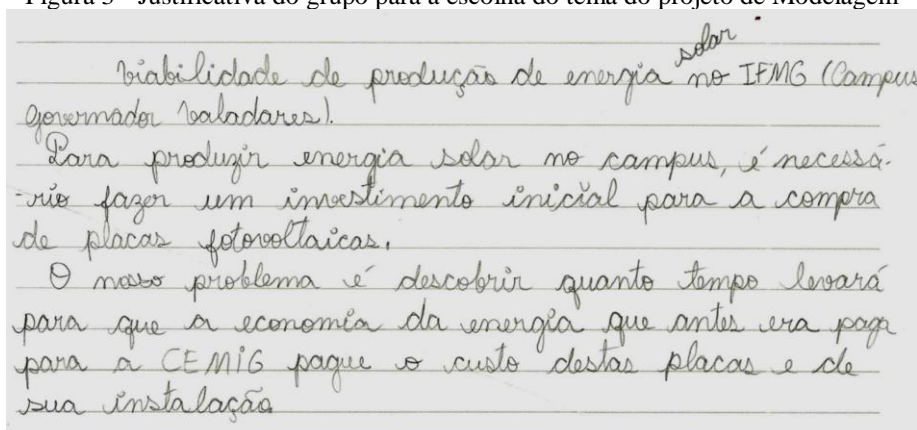 Figura 3 – Justificativa do grupo para a escolha do tema do projeto de Modelagem
Viabilidade de produção de energia solar no IFMG (Campus
Governador Valadares).
Para produzir energia solar no campus, é necessá-
-rio fazer um investimento inicial para a compra
de placas fotovoltaicas.
O nosso problema é descobrir quanto tempo levará
para que a economia da energia que antes era paga
para a CEMIG pague o custo destas placas e de
sua instalação